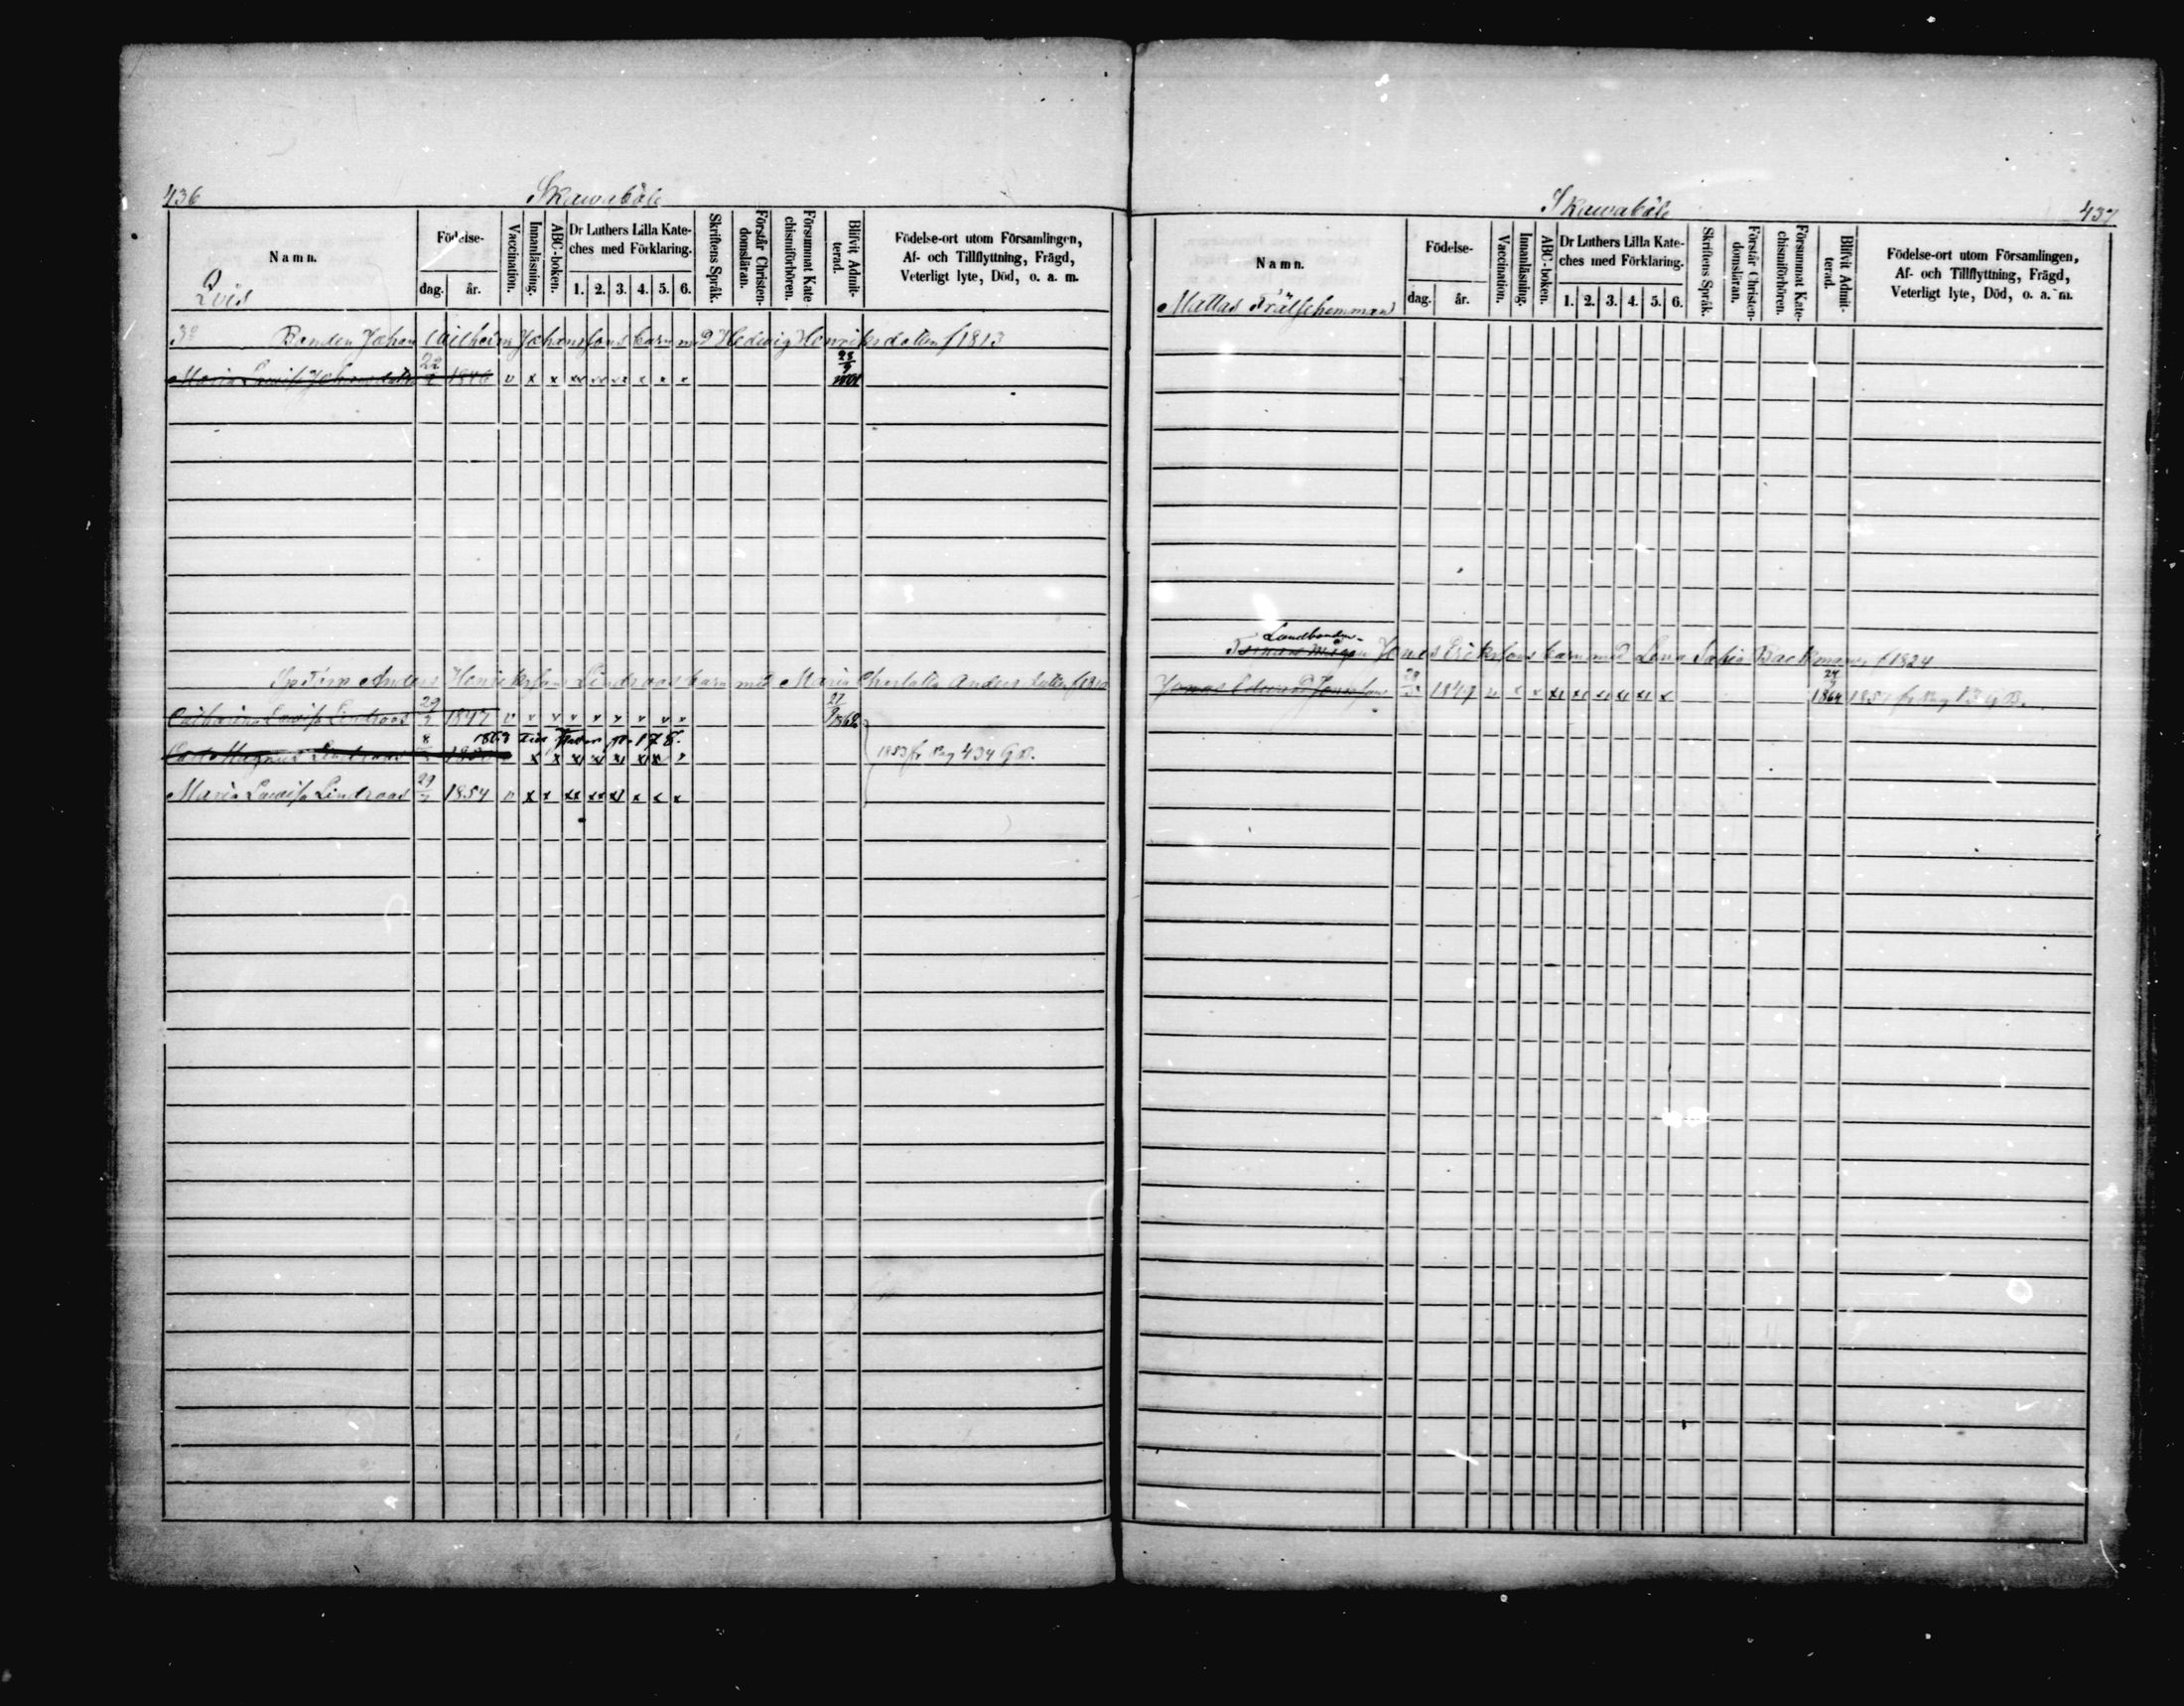 436
Skawabôle
Namn.
Qvis
Födelse-
dag.
år.
Vaccination.
Innanläsning.
ABC-boken.
Dr Luthers Lilla Kate-
ches med Förklaring.
1. 2. 3. 4. 5. 6.
Skriftens Språk.
Förstår Christen-
domsläran.
Försummat Kate-
chismiförhören.
Blifvit Admit-
terad.
Födelse-ort utom Församlingen,
Af- och Tillflyttning, Frägd,
Veterligt lyte, Död, o. a. m.
Bonden Johan Wilhelm Johanssons barn med Hedwig Henriksdotter f 1813
Maria Lovisa Johansdotter 22 1846 v x x xx xx xx x x x 28/9
Anders Henriksson Lindroos barn med Maria Charlotta Andersdotter f 1810
Catharina Lovisa Lindroos 29 1847 v v v v v v v v v 27/9 1862
1863 Till Flattar p. 178.
Carl Magnus Lindroos 8 x x x x x x x
1853 fr Pag 434 G.B.
Maria Lovisa Lindroos 29 1854 v x x xx xx xx x x x
Skawabôle
437
Namn.
Mallas Frälsehemman
Födelse-
dag.
år.
Vaccination.
Innanläsning.
ABC-boken.
Dr Luthers Lilla Kate-
ches med Förklaring.
1. 2. 3. 4. 5. 6.
Skriftens Språk.
Förstår Christen-
domsläran.
Försummat Kate-
chismiförhören.
Blifvit Admit-
terad.
Födelse-ort utom Församlingen,
Af- och Tillflyttning, Frägd,
Veterligt lyte, Död, o. a. m.
Landbonden
Jonas Erikssons barn med Lena Sofia Backman f 1824
Jonas Edvard Jonasson 28 1849 v x x x x x x x x 24/9 1864 1851 fr Pag G.B.